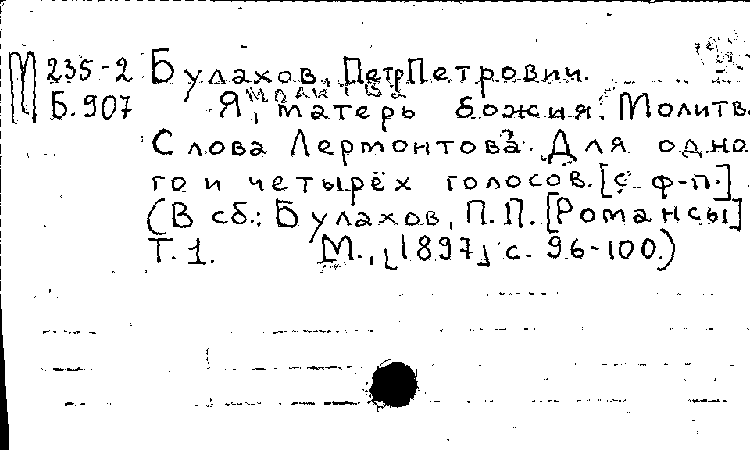 М 235-2 Булахов, Петр Петрович.
Б.907 Я, матерь божия. Молитв.
Слова Лермонтова. Для одно
го и четырёх голосов. [с ф-п.]
(В сб.: Булахов, П.П. [Романсы]
Т. 1. М., [1897] с. 96-100.)